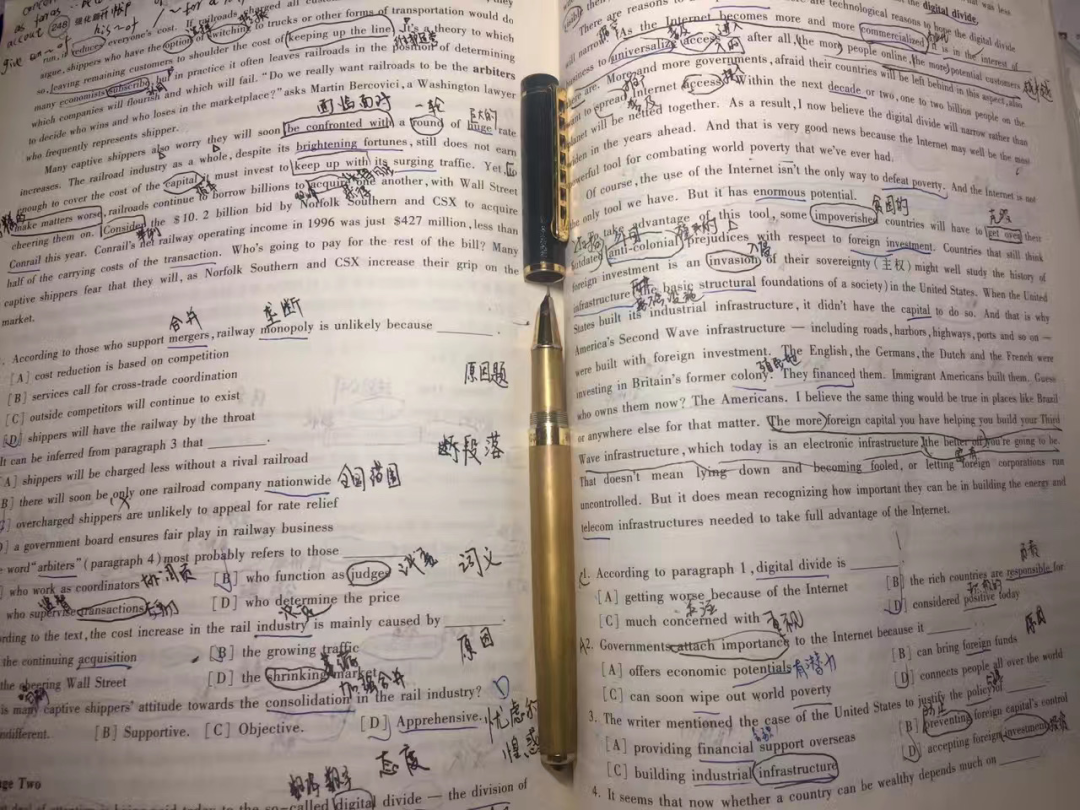 everyone's cost. If railroads charged all customers
argue, shippers who have the option of switching to trucks or other forms of transportation would do
so, leaving remaining customers to shoulder the cost of keeping up the line. It's a theory to which
many economists subscribe, but in practice it often leaves railroads in the position of determining
which companies will flourish and which will fail. "Do we really want railroads to be the arbiters
to decide who wins and who loses in the marketplace?" asks Martin Bercovici, a Washington lawyer
who frequently represents shipper.
面临面对
一轮
巨大的
Many captive shippers also worry they will soon be confronted with a round of huge rate
increases. The railroad industry as a whole, despite its brightening fortunes, still does not earn
enough to cover the cost of the capital it must invest to keep up with its surging traffic. Yet
railroads continue to borrow billions to acquire one another, with Wall Street
make matters worse,
cheering them on. Consider the $10.2 billion bid by Norfolk Southern and CSX to acquire
Conrail this year. Conrail's net railway operating income in 1996 was just $427 million, less than
half of the carrying costs of the transaction. Who's going to pay for the rest of the bill? Many
captive shippers fear that they will, as Norfolk Southern and CSX increase their grip on the
market.
合并
垄断
According to those who support mergers, railway monopoly is unlikely because ______.
[A] cost reduction is based on competition
[B] services call for cross-trade coordination
原因题
[C] outside competitors will continue to exist
[D] shippers will have the railway by the throat
It can be inferred from paragraph 3 that ______.
段落
[A] shippers will be charged less without a rival railroad
[B] there will soon be only one railroad company nationwide 全国范围
overcharged shippers are unlikely to appeal for rate relief
a government board ensures fair play in railway business
word "arbiters" (paragraph 4) most probably refers to those ______
词义
who work as coordinators
[B] who function as judges
who supervise transactions
[D] who determine the price
According to the text, the cost increase in the rail industry is mainly caused by ______.
原因
the continuing acquisition
[B] the growing traffic
the cheering Wall Street
[D] the shrinking market
加强合并
is many captive shippers' attitude towards the consolidation in the rail industry?
[B] Supportive. [C] Objective. [D] Apprehensive.
态度
Two
so-called digital divide — the division of
digital divide.
There are reasons to
are technological reasons
the digital divide
will narrow. As the Internet becomes more and more commercialized, it is in the interest of
business to universalize access — after all, the more people online, the more potential customers
there are. More and more governments, afraid their countries will be left behind in this aspect,
want to spread Internet access. Within the next decade or two, one to two billion people on the
planet will be netted together. As a result, I now believe the digital divide will narrow rather than
widen in the years ahead. And that is very good news because the Internet may well be the most
powerful tool for combating world poverty that we've ever had.
Of course, the use of the Internet isn't the only way to defeat poverty. And the Internet is not
the only tool we have. But it has enormous potential.
贫困的
To take advantage of this tool, some impoverished countries will have to get over their
outdated anti-colonial prejudices with respect to foreign investment. Countries that still think
foreign investment is an invasion of their sovereignty (主权) might well study the history of
infrastructure (the basic structural foundations of a society) in the United States. When the United
States built its industrial infrastructure, it didn't have the capital to do so. And that is why
America's Second Wave infrastructure — including roads, harbors, highways, ports and so on —
were built with foreign investment. The English, the Germans, the Dutch and the French were
investing in Britain's former colony. They financed them. Immigrant Americans built them. Guess
who owns them now? The Americans. I believe the same thing would be true in places like Brazil
or anywhere else for that matter. The more foreign capital you have helping you build your Third
Wave infrastructure, which today is an electronic infrastructure, the better off you're going to be.
That doesn't mean lying down and becoming fooled, or letting foreign corporations run
uncontrolled. But it does mean recognizing how important they can be in building the energy and
telecom infrastructures needed to take full advantage of the Internet.
1. According to paragraph 1, digital divide is ______
[A] getting worse because of the Internet
[B] the rich countries are responsible for
[C] much concerned with
[D] considered positive today
重视
2. Governments attach importance to the Internet because it ______
原因
[A] offers economic potentials 有潜力
[B] can bring foreign funds
[C] can soon wipe out world poverty
[D] connects people all over the world
3. The writer mentioned the case of the United States to justify the policy of ______
[A] providing financial support overseas
[B] preventing foreign capital's control
[C] building industrial infrastructure
[D] accepting foreign investment
4. It seems that now whether a country can be wealthy depends much on ______